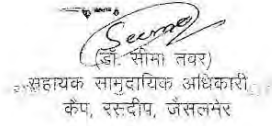 Seema
(डॉ. सीमा तवर)
सहायक सामुदायिक अधिकारी
कैप, रसदीप, जैसलमेर